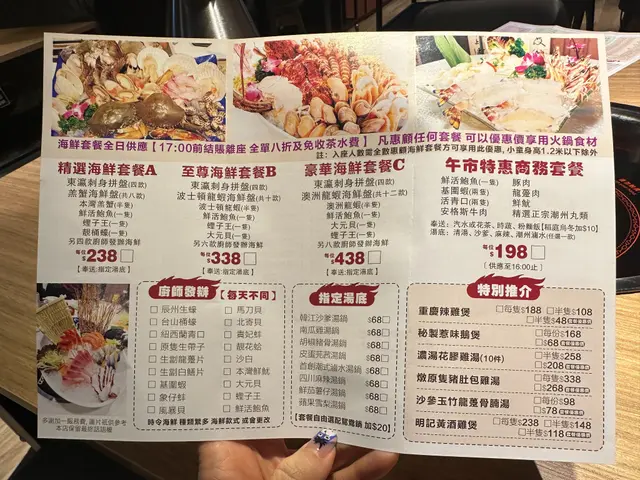 海鮮套餐全日供應【17:00前結賬離座 全單八折及免收茶水費】 凡惠顧任何套餐 可以優惠價享用火鍋食材
註：入座人數需全數惠顧海鮮套餐方可享用此優惠, 小童身高1.2米以下除外
精選海鮮套餐A
東瀛刺身拼盤(四款)
蒸蟹海鮮拼盤(共八款)
本灣蒸蟹(半隻)
鮮活鮑魚(一隻)
蟶子王(一隻)
靚桶蠔(一隻)
另四款廚師發辦海鮮
每位 $238
【奉送:指定湯底】
至尊海鮮套餐B
東瀛刺身拼盤(四款)
波士頓龍蝦海鮮拼盤(共十款)
波士頓龍蝦(半隻)
鮮活鮑魚(一隻)
蟶子王(一隻)
大元貝(一隻)
另六款廚師發辦海鮮
每位 $338
【奉送:指定湯底】
豪華海鮮套餐C
東瀛刺身拼盤(四款)
澳洲龍蝦海鮮拼盤(共十二款)
澳洲龍蝦(半隻)
鮮活鮑魚(一隻)
大元貝(一隻)
蟶子王(一隻)
另八款廚師發辦海鮮
每位 $438
【奉送:指定湯底】
午市特惠商務套餐
鮮活鮑魚(一隻) 豚肉
基圍蝦(兩隻) 龍躉肉
活青口(兩隻) 鮮魷
安格斯牛肉 精選正宗潮州丸類
奉送: 汽水或花茶、時蔬、粉麵飯【稻庭烏冬加$10】
湯底: 清湯、沙爹、麻辣、潮州滷水(任選一款)
每位 $198
( 供應至16:00止 )
廚師發辦【每天不同】
辰州生蠔 馬刀貝
台山桶蠔 北寄貝
紐西蘭青口 貴妃蚌
原隻生帶子 靚花蛤
生劏龍躉片 沙白
生劏白鱔片 本灣鮮魷
基圍蝦 大元貝
象仔蚌 蟶子王
風暴貝 鮮活鮑魚
時令海鮮 種類繁多 海鮮款式 或會更改
指定湯底
韓江沙爹湯鍋 $68
南瓜雞湯鍋 $68
胡椒豬骨湯鍋 $68
皮蛋芫茜湯鍋 $68
首創潮式滷水湯鍋 $68
四川麻辣湯鍋 $68
鮮茄薯仔湯鍋 $68
蘋果雪梨湯鍋 $68
【套餐自由選配鴛鴦鍋 加$20】
特別推介
重慶辣雞煲 每隻$188 半隻$108
半隻$48
秘製惹味鵝煲 每份$168
$68
濃湯花膠雞湯(10件) 半隻$258
$208
燉原隻豬肚包雞湯 每隻$338
$268
沙參玉竹龍躉骨腩湯 每份$98
$78
明記黃酒雞煲 每隻$238 半隻$148
半隻$118
多謝加一服務費, 圖片祇供參考
本店保留最終話語權